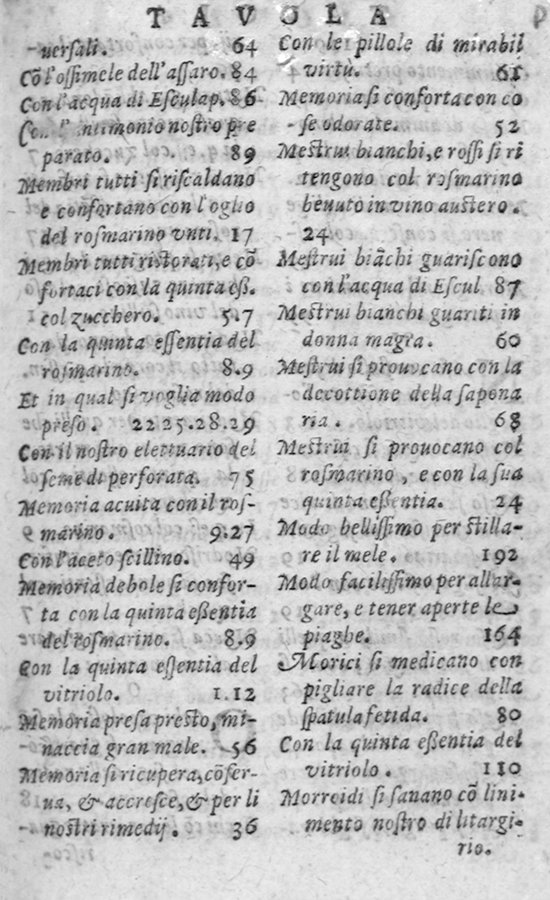 TAVOLA
uersali. 64
Cõ l'ossimele dell'assaro. 84
Con l'acqua di Esculap. 86
Con l'antimonio nostro pre
parato. 89
Membri tutti si riscaldano
e confortano con l'oglio
del rosmarino vnti. 17
Membri tutti ristorati, e cõ
fortaci con la quinta eß.
col zucchero. 5.7
Con la quinta essentia del
rosmarino. 8.9
Et in qual si voglia modo
preso. 22.25.28.29
Con il nostro elettuario del
seme di perforata. 75
Memoria acuita con il ros-
marino. 9.27
Con l'aceto scillino. 49
Memoria debole si confor-
ta con la quinta eßentia
del rosmarino. 8.9
Con la quinta eßentia del
vitriolo. 1.12
Memoria presa presto, mi-
naccia gran male. 56
Memoria si ricupera, cõser-
ua, & accresce, & per li
nostri rimedij. 36
Con le pillole di mirabil
virtù. 61
Memoria si conforta con co
se odorate. 52
Mestrui bianchi, e rossi si ri
tengono col rosmarino
beuuto in vino austero.
24
Mestrui biãchi guariscono
con l'acqua di Escul 87
Mestrui bianchi guariti in
donna magra. 60
Mestrui si prouocano con la
decottione della sapona
ria. 68
Mestrui si prouocano col
rosmarino, e con la sua
quinta eßentia. 24
Modo bellissimo per stilla-
re il mele. 192
Modo facilissimo per allar-
gare, e tener aperte le
piaghe. 164
Morici si medicano con
pigliare la radice della
spatula fetida. 80
Con la quinta eßentia del
vitriolo. 110
Morroidi si sanano cõ lini-
mento nostro di litargi-
rio.